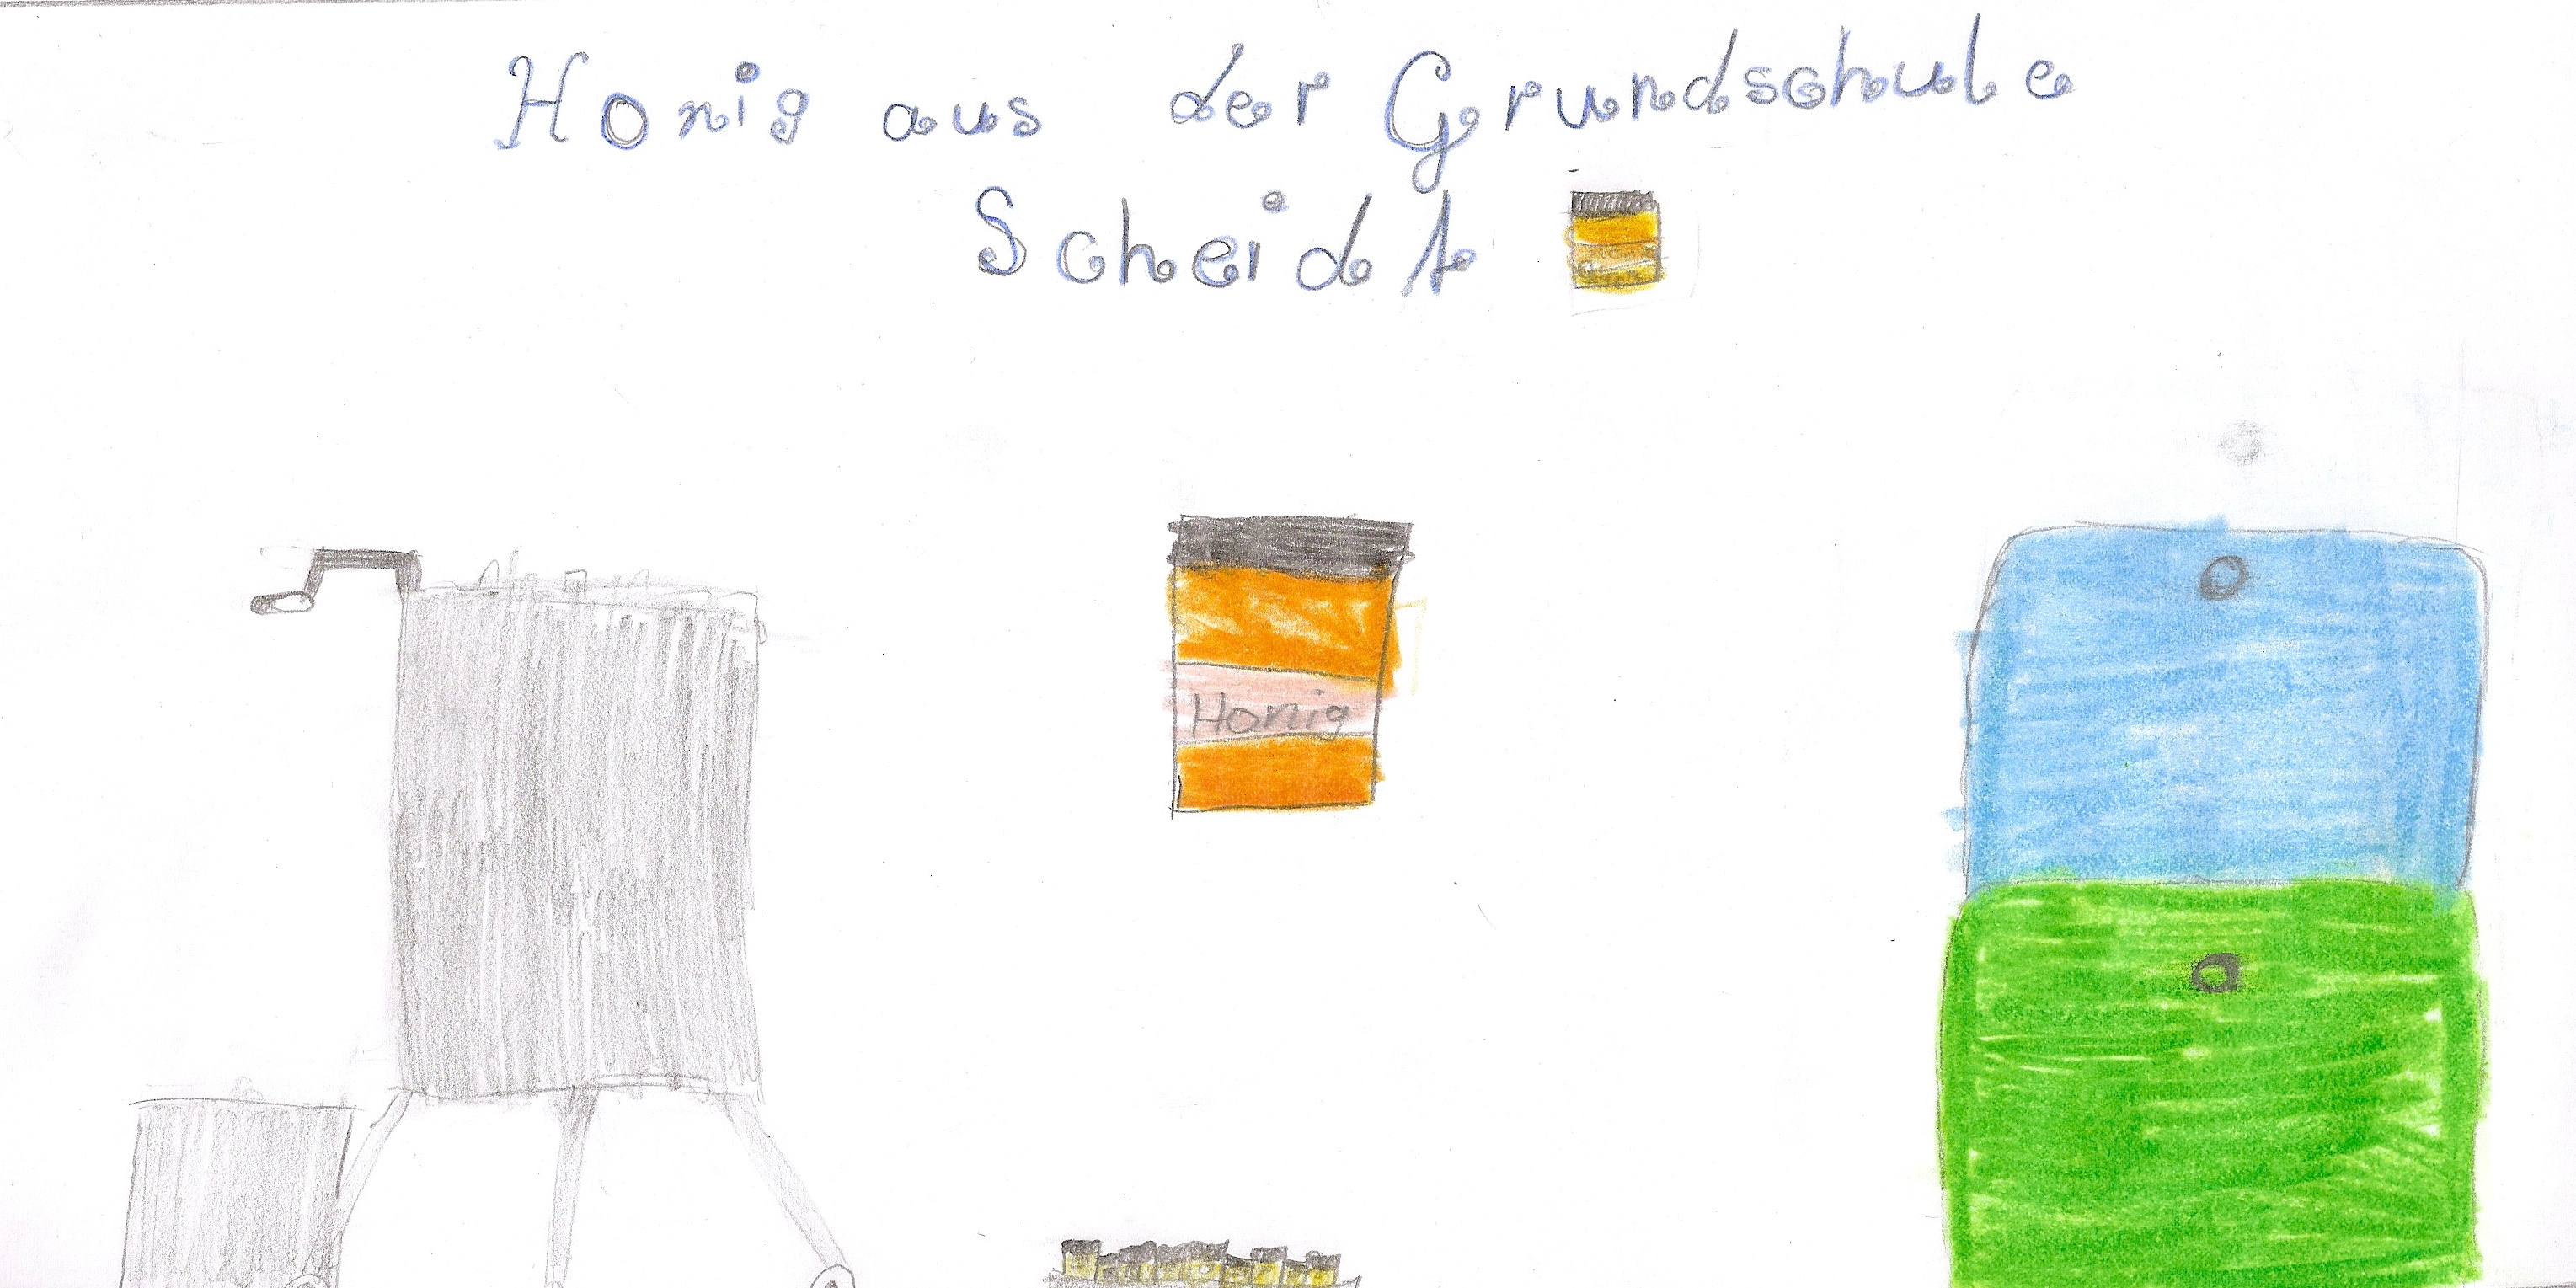 Honig aus der Grundschule
Scheidt
Honig